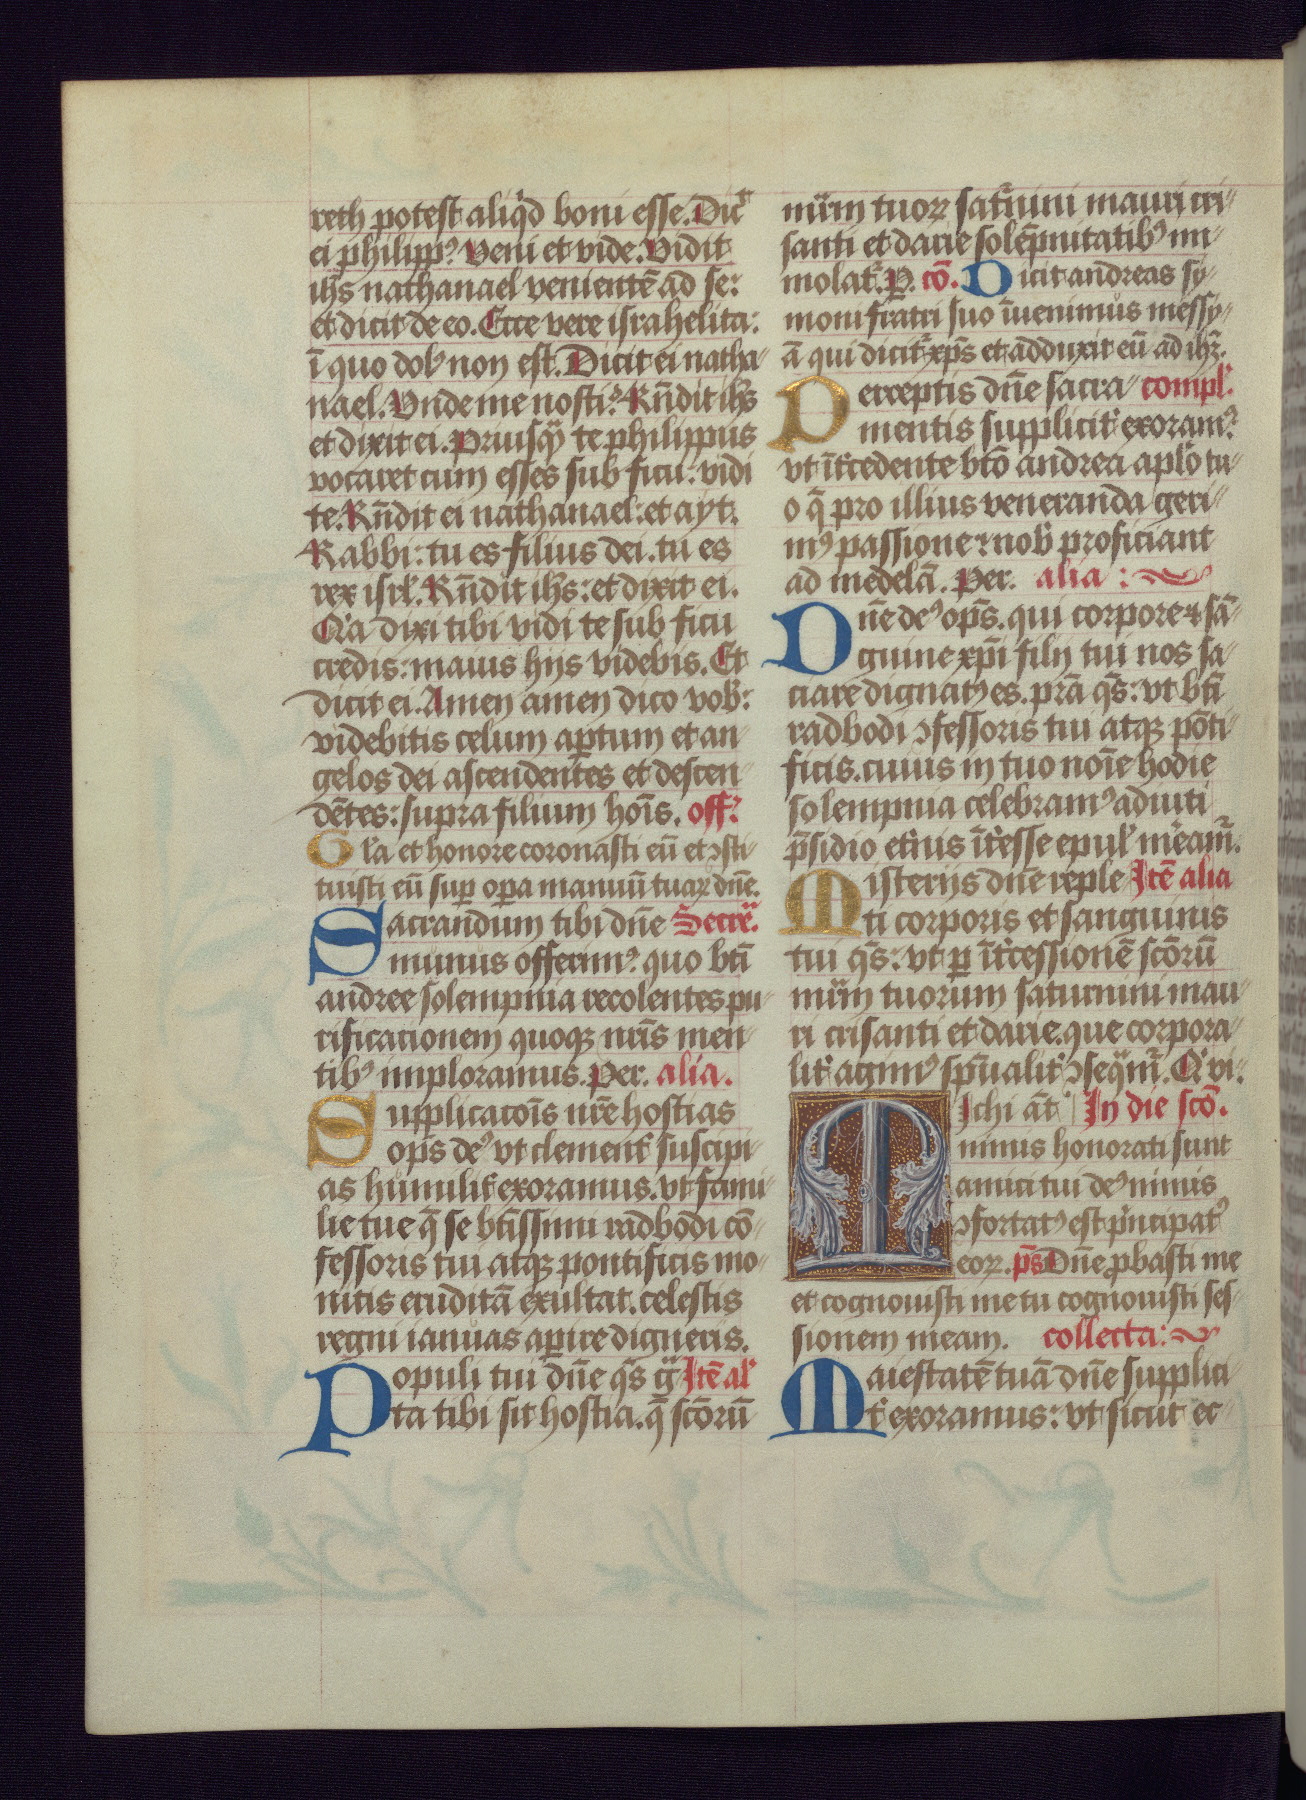 reth potest aliq̉d boni esse. Dic̉
ei philippꝰ. Veni et vide. Vidit
ih̄s nathanael venientē ad se:
et dicit de eo. Ecce vere israhelita:
ī quo dolꝰ non est. Dicit ei natha-
nael. Vnde me nosti? Rn̄dit ih̄s
et dixit ei. Priusqͣ̄ te philippus
vocaret cum esses sub ficu: vidi
te. Rn̄dit ei nathanael: et ayt.
Rabbi: tu es filius dei. tu es
rex isrl̄. Rn̄dit ih̄s: et dixit ei.
Qꝛa dixi tibi vidi te sub ficu
credis: maius hijs videbis. Et
dicit ei. Amen amen dico vob̄:
videbitis celum aꝑtum et an-
gelos dei ascendentes et descen-
dētes: supra filium hoīs. off.
Gl̄a et honore coronasti eū et ꝯsti-
tuisti eū suꝑ oꝑa manuū tuaꝝ dn̄e.
Sacrandum tibi dn̄e Secre.
munus offerimꝰ. quo bt̄i
andree solempnia recolentes pu-
rificationem quoqꝫ nr̄is men-
tibꝰ imploramus. Per. alia.
Supplicacōis nr̄e hostias
op̄s deꝰ vt clement̄ suscipi-
as humilit̄ exoramus. vt fami-
lie tue q̄ se bt̄issimi radbodi cō-
fessoris tui atqꝫ pontificis mo-
nitis eruditā exultat. celestis
regni ianuas aꝑire digneris.
Populi tui dn̄e q̄s gͣ Itē al̓
ta tibi sit hostia. q̄ scōrū
mr̄m tuoꝝ sat̉nini mauri cri-
santi et darie solēpnitatibꝰ im-
molat̉. P. cō. Dicit andreas sy-
moni fratri suo īuenimus messy-
ā qui dicit̉ xp̄s et adduxit eū ad ih̄ꝫ.
Perceptis dn̄e sacra- compl̓.
mentis suppliciter exoramꝰ.
vt īt̄cedente bt̄o andrea apl̄o tu-
o q̄ pro illius veneranda geri-
mꝰ passione ⁊ nob̄ proficiant
ad medelā. Per. alia:
Dn̄e deꝰ op̄s. qui corpore ⁊ sā-
guine xp̄i filij tui nos sa-
ciare dignatꝰ es. pr̄a q̄s: vt bt̄i
radbodi ꝯfessoris tui atqꝫ pōti-
ficis. cuius in tuo noīe hodie
solempnia celebramꝰ adiuti
p̄sidio et̓ius īt̄esse epul̓ mr̄eam̉.
Misterijs dn̄e reple Itē alia
ti corporis et sanguinis
tui q̄s: vt ꝑ īt̄cessionē scōrū
mr̄m tuorum saturnini mau-
ri crisanti et darie. que corpora-
lit̄ agimꝰ sp̄ualit̄ ꝯseqͣm̉. Q̓ vi.
Michi āt̄ In die scō.
nimis honorati sunt
amici tui deꝰ nimis
ꝯfortatꝰ est pͥncipatꝰ
eoꝝ. p̄s Dn̄e ꝓbasti me
et cognouisti me tu cognouisti ses-
sionem meam. collecta:
Maiestatē tuā dn̄e supplici-
t̄ exoramus: vt sicut ec-